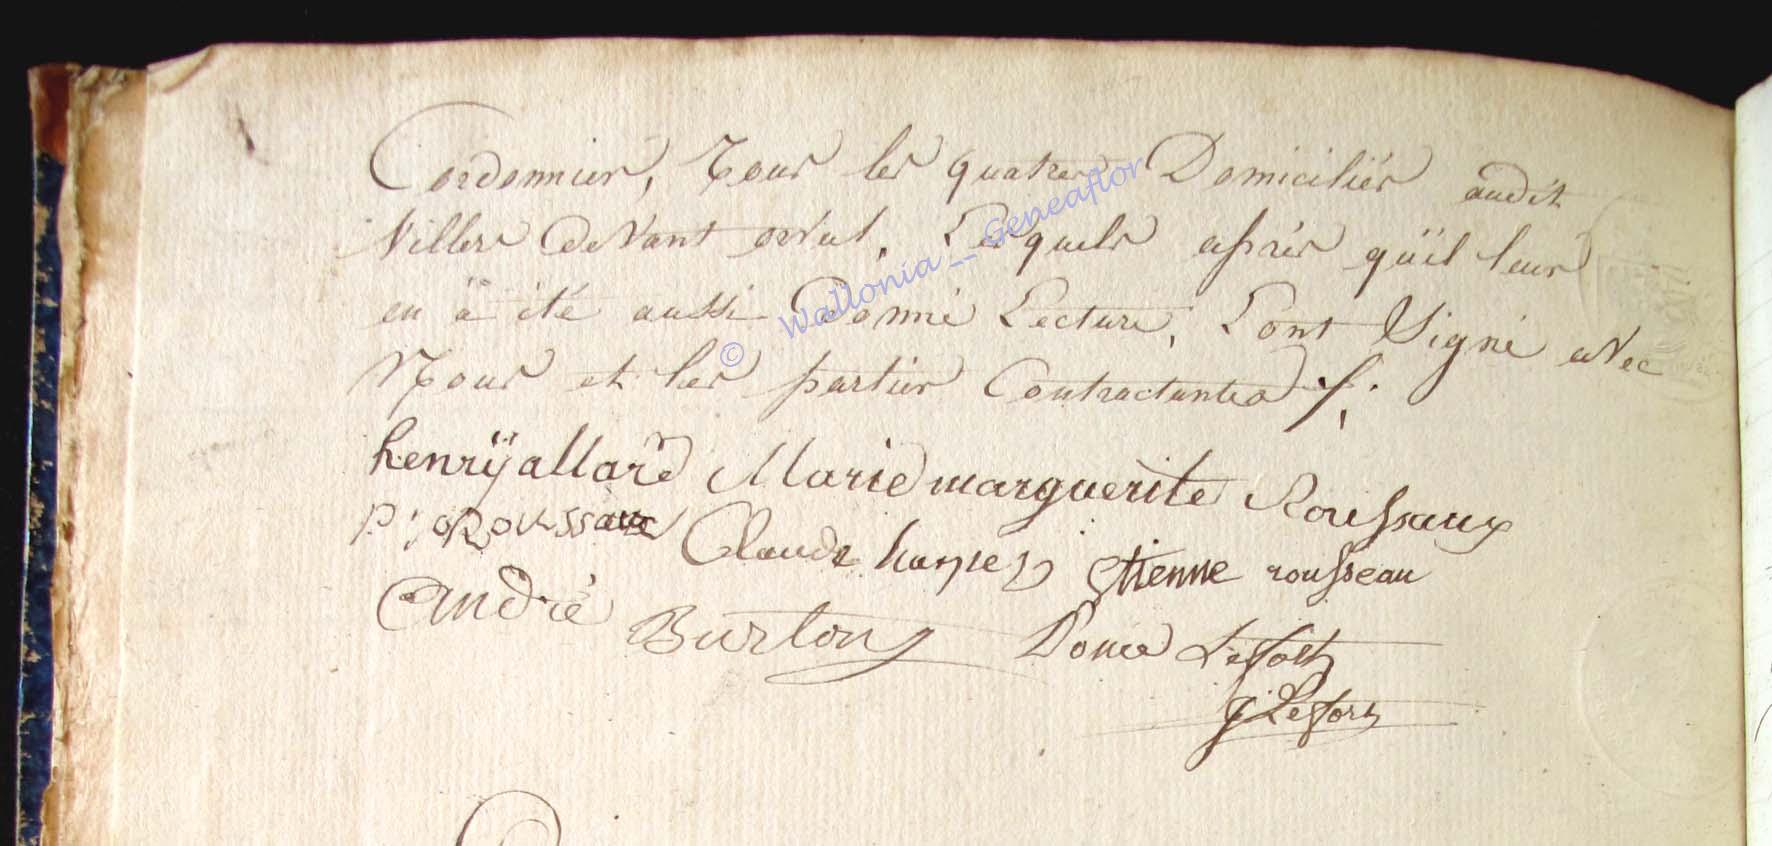 Cordonnier, Tous les quatres Domiciliés audit
Villers devant orval, Lesquels après qüil leur
en à été aussi Donné Lecture, L'ont Signé avec
Nous et les parties Contractantes
henrÿ allard Marie marguerite Roussaux
Claude Etienne rousseau
André Burton Lefort
Lefort
© Wallonia__Geneaflor